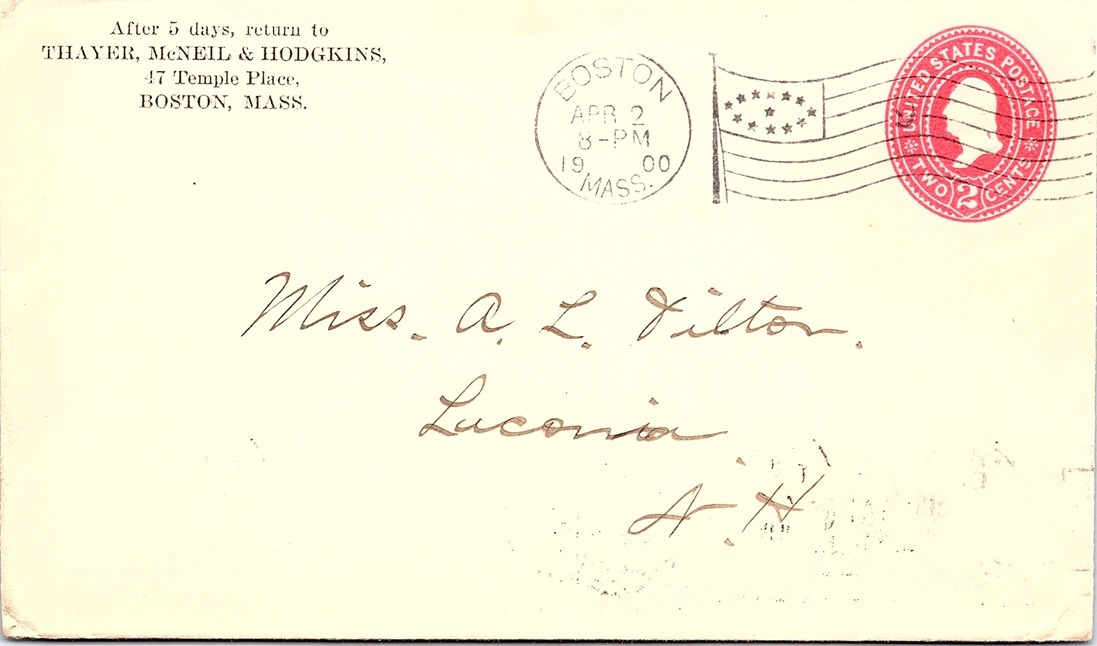 After 5 days, return to
THAYER, McNEIL & HODGKINS,
47 Temple Place,
BOSTON, MASS.
BOSTON
APR 2
8-PM
19 00
MASS.
UNITED STATES POSTAGE
TWO 2 CENTS
Miss. A. L. Tilton.
Laconia
N. H.